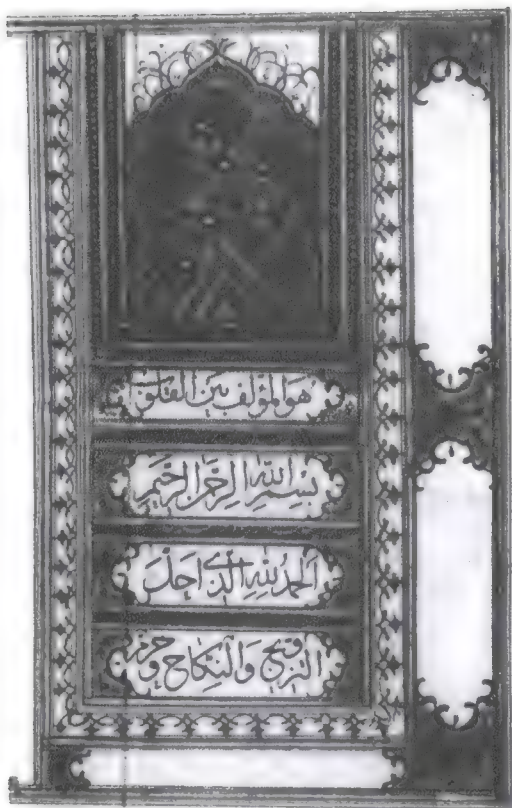 هو المؤلف بين القلوب
بسم الله الرحمن الرحيم
الحمد لله الذی احل
التزویج والنکاح وحرم